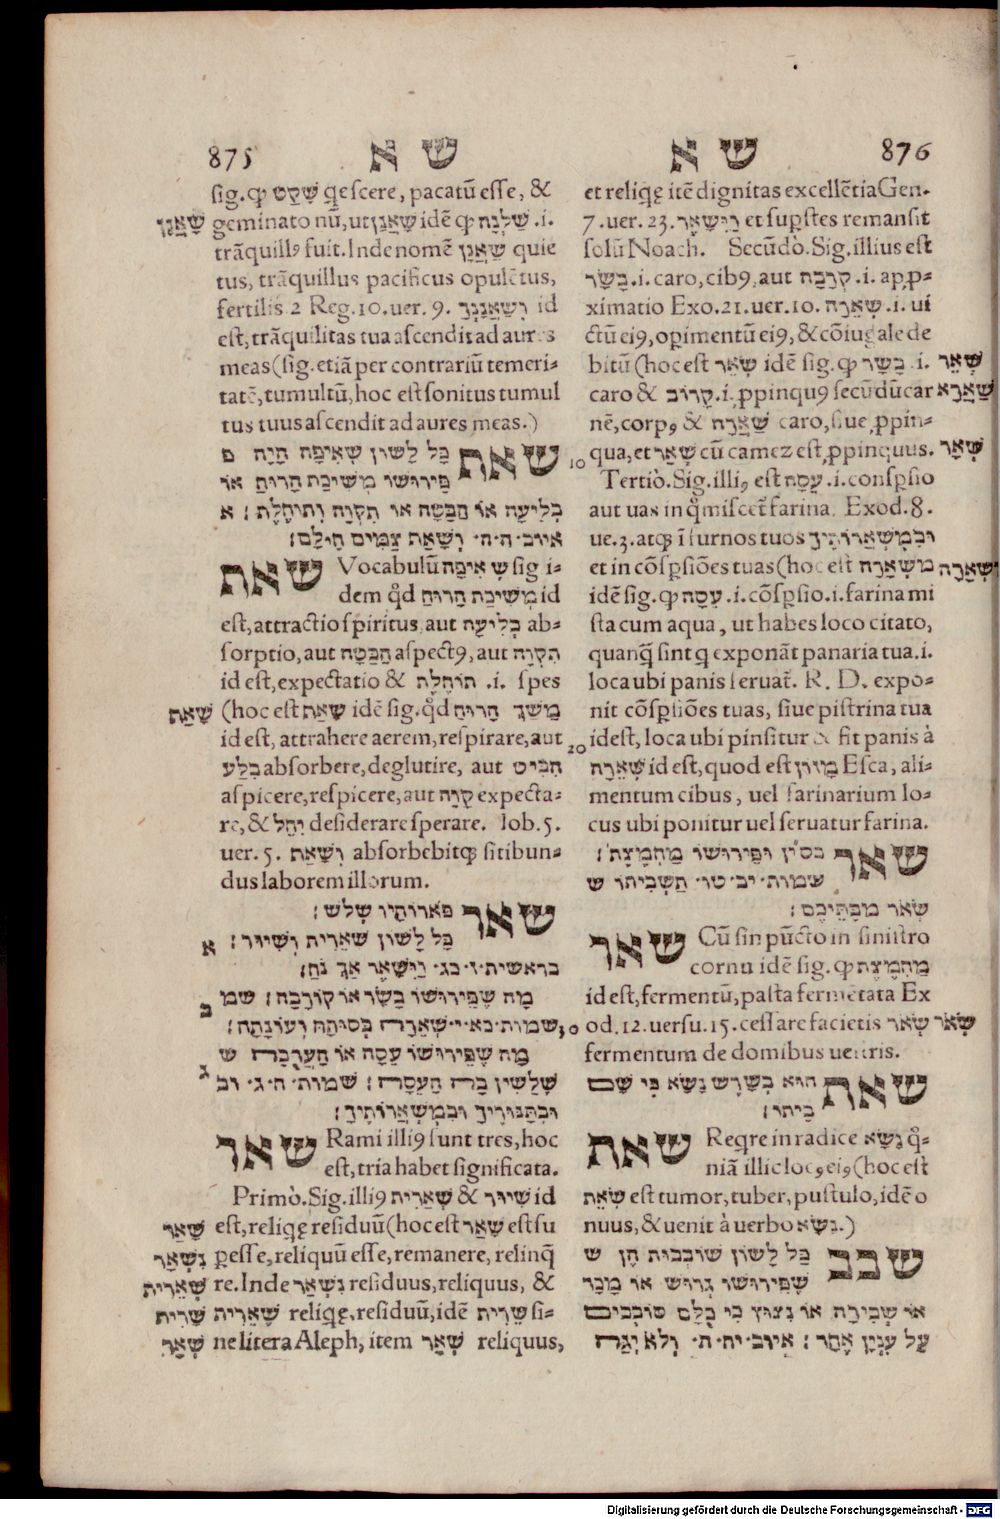 875 ש א
sig. qƺ שָׁקַט qeſcere, pacatū eſſe, &
שָׁאֲנָן geminato nū, ut שַׁאֲנָן idē qƺ שַׁלְנָה .i.
trāquillꝰ fuit. Inde nomē שַׁאֲנָן quie
tus, trāquillus pacificus opulētus,
fertilis 2 Reg. 10. uer. 9. וְשַׁאֲנַנְךָ id
eſt, trāquilitas tua aſcendit ad aures
meas (ſig. etiā per contrariū temeri-
tatē, tumultū, hoc eſt ſonitus tumul
tus tuus aſcendit ad aures meas.)
שאת כָּל לַשׁוֹן שְׁאִיפָה הָיָה פ
פֵּירוּשׁוֹ מְשִׁיכַת הָרוּחַ אוֹ
בְּלִיעָה אוֹ הַבָּטָה אוֹ תִּקְוָה וְתוֹחֶלֶת : א
איוב · ה · ה · וְשָׁאַף צַמִּים חֵילָם :
שאת Vocabulū שְׁאִיפָה ſig i-
dem qd מְשִׁיכַת הָרוּחַ id
eſt, attractio ſpiritus, aut בְּלִיעָה ab-
ſorptio, aut הַבָּטָה aſpectꝰ, aut תִּקְוָה
id eſt, expectatio & תּוֹחֶלֶת .i. ſpes
שָׁאַת (hoc eſt שָׁאַת idē ſig. qd מָשַׁךְ הָרוּחַ
id eſt, attrahere aerem, reſpirare, aut
בָּלַע abſorbere, deglutire, aut הִבִּיט
aſpicere, reſpicere, aut קִוָּה expecta-
re, & יִחֵל deſiderare ſperare. Iob. 5.
uer. 5. וְשָׁאַת abſorbebitqƺ ſitibun-
dus laborem illorum.
שאר פֵּארוֹתָיו שָׁלֹשׁ :
א כָּל לָשׁוֹן שְׁאֵרִית וְשִׁיּוּר :
בראשית · ז · כג · וַיִּשָּׁאֶר אַךְ נֹחַ :
ב מָה שֶׁפֵּירוּשׁוֹ בָּשָׂר אוֹ קוּרְבָה : שמו
שמות · כא · י · שְׁאֵרָהּ כְּסוּתָהּ וְעוֹנָתָהּ :
ג מַה שֶׁפֵּירוּשׁוֹ עִסָּה אוֹ הָעֲרֵבָה ש
שֶׁלָּשִׁין בָּהּ הָעִסָּה : שמות · ח · ג · וב
וּבְתַנּוּרֶיךָ וּבְמִשְׁאֲרוֹתֶיךָ :
שאר Rami illiꝰ ſunt tres, hoc
eſt, tria habet ſignificata.
Primò. Sig. illiꝰ שְׁאֵרִית & שִׁיּוּר id
שָׁאַר eſt, reliqę reſiduū (hoc eſt שָׁאַר eſt ſu
נִשְׁאַר ꝑeſſe, reliquū eſſe, remanere, relinq̄
שְׁאֵרִית re. Inde נִשְׁאָר reſiduus, reliquus, &
שֵׁרִית שְׁאֵרִית reliqę, reſiduū, idē שֵׁרִית ſi-
שְׁאָר ne litera Aleph, item שְׁאָר reliquus,
ש א 876
et reliqę itē dignitas excellētia Gen.
7. uer. 23. וַיִּשָּׁאֶר et ſuꝑſtes remanſit
ſolū Noach. Secūdò. Sig. illius eſt
בָּשָׂר .i. caro, cibꝰ, aut קִרְבָה .i. apꝓ-
ximatio Exo. 21. uer. 10. שְׁאֵרָהּ .i. ui
ctū eiꝰ, oꝑimentū eiꝰ, & cōiugale de
bitū (hoc eſt שְׁאֵר idē ſig. qƺ בָּשָׂר .i. שְׁאֵר
caro & קָרוֹב .i. ꝓpinquꝰ ſecūdū car שַׁאֲרָא
nē, corpꝰ, & שַׁאֲרָה caro, ſiue ꝓpin-
10 qua, et שְׁאָר cū camez eſt ꝓpinquus. שְׁאָר
Tertiò. Sig. illiꝰ eſt עִסָּה .i. conſꝑſio
aut uas in q̊ miſcet̄ farina. Exod. 8.
ue. 3. atqƺ ī furnos tuos וּבְמִשְׁאֲרוֹתֶיךָ
et in cōſꝑſiōes tuas (hoc eſt מִשְׁאָרָה מִשְׁאָרָה
idē ſig. qƺ עִסָּה .i. cōſꝑſio .i. farina mi
ſta cum aqua, ut habes loco citato,
quanq̄ ſint q exponāt panaria tua .i.
loca ubi panis ſeruat̄. R. D. expo-
nit cōſꝑſiōes tuas, ſiue piſtrina tua
20 id eſt, loca ubi pinſitur & fit panis à
שְׁאֵרָה id eſt, quod eſt מָזוֹן Eſca, ali-
mentum cibus, uel farinarium lo-
cus ubi ponitur uel ſeruatur farina.
שאר בס״ין וּפֵירוּשׁוֹ מַחְמֶצֶת :
שמות · יב · טו · תַּשְׁבִּיתוּ ש
שְׂאֹר מִבָּתֵּיכֶם :
שאר Cū ſin pūcto in ſiniſtro
cornu idē ſig. qƺ מַחְמֶצֶת
id eſt, fermentū, paſta fermētata Ex
30 od. 12. uerſu. 15. ceſſare facietis שְׂאֹר שְׂאֹר
fermentum de domibus ueſtris.
שאת הוּא בְּשֹׁרֶשׁ נָשָׂא כִּי שָׁם
בֵּיתוֹ :
שאת Reqre in radice נָשָׂא q̊-
niā illic locꝰ eiꝰ (hoc eſt
שְׂאֵת eſt tumor, tuber, puſtulo, idē o
nuus, & uenit à uerbo נָשָׂא.)
שבב כָּל לָשׁוֹן שׁוֹבְבוּת הֵן ש
שֶׁפֵּירוּשׁוֹ גֵּרוּשׁ אוֹ מַכַּר
אוֹ שְׁבִירָה אוֹ נִצּוֹץ כִּי כֻלָּם סוֹבְבִים
עַל עִנְיָן אֶחָד : איוב · יח · ה · וְלֹא יִגַּהּ
Digitalisierung gefördert durch die Deutsche Forschungsgemeinschaft - DFG